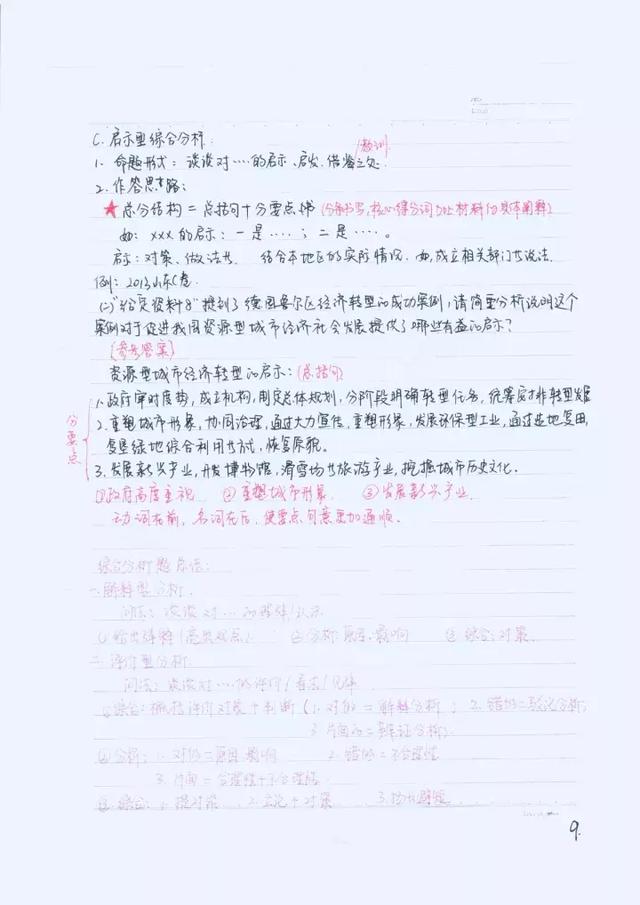 C. 启示型综合分析:
教训
1. 命题形式: 谈谈对····的启示、启发、借鉴之处.
2. 作答思路:
★总分结构 = 总括句 + 分要点
如: xxx的启示: 一是····; 二是····。
启示: 对策、做法 结合本地区的实际情况. 如,成立相关部门
例: 2013山东C卷
(二)"给定资料8"提到了德国鲁尔区经济转型的成功案例, 请简要分析说明这个
案例对于促进我国资源型城市经济社会发展提供了哪些有益的启示?
(参考答案)
资源型城市经济转型的启示: (总括句)
分要点
1. 政府审时度势, 成立机构, 制定总体规划, 分阶段明确转型任务, 统筹安排转型发展
2. 重塑城市形象, 协同治理, 通过大力宣传, 重塑形象, 发展环保型工业, 通过造地复田,
复垦绿地综合利用 方式, 恢复原貌.
3. 发展新兴产业, 开发博物馆, 滑雪场 旅游产业, 挖掘城市历史文化.
①政府高度重视 ②重塑城市形象 ③发展新兴产业
动词在前, 名词在后, 使要点句意更加通顺.
综合分析题总结:
一.解释型分析.
问法: 谈谈对···的理解/认识
②分析: 原因.影响 ③综合: 对策.
二.评价型分析
问法: 谈谈对····的评价/看法/见解
1. 对的 = 解释分析;
②分析: 1. 对的 = 原因.影响 2. 错的 = 不合理性
3. 片面 = 合理性+不合理性
1. 提对策 2. 结论+对策
9.